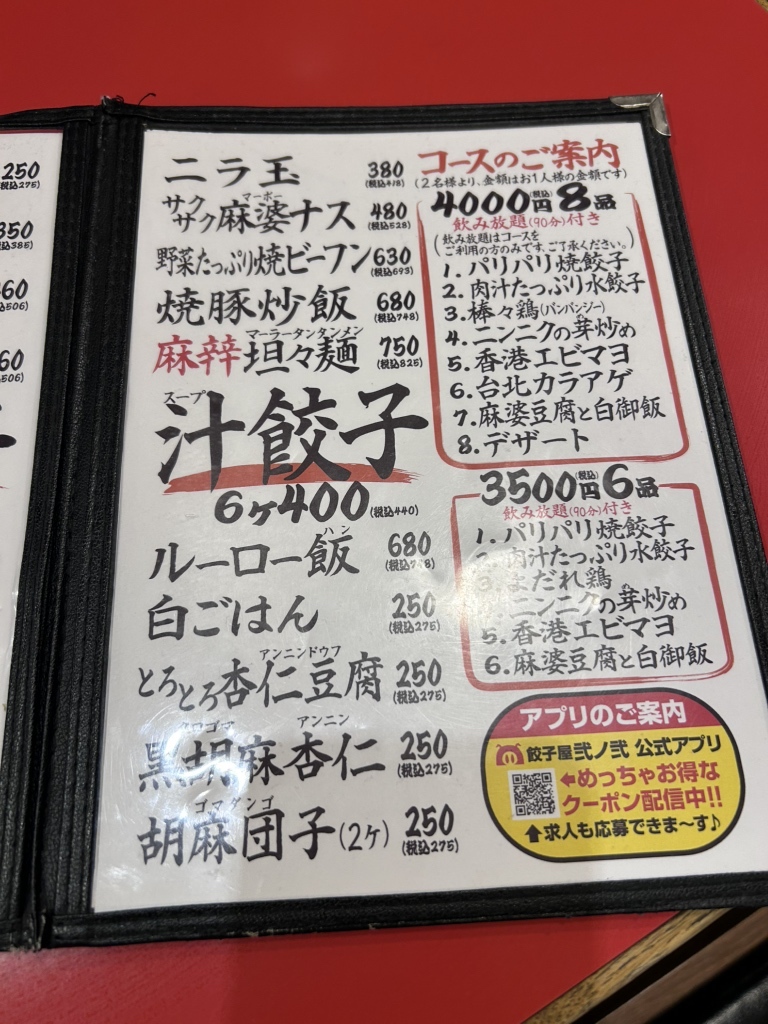 250
(税込275)
350
(税込385)
60
506)
60
506)
ニラ玉 380
(税込418)
マーボー
サクサク麻婆ナス 480
(税込528)
野菜たっぷり焼ビーフン 630
(税込693)
焼豚炒飯 680
(税込748)
マーラータンタンメン
麻辛坦々麺 750
(税込825)
スープ
汁餃子
6ヶ400(税込440)
ハン
ルーロー飯 680
(税込748)
白ごはん 250
(税込275)
アンニンドウフ
とろとろ杏仁豆腐 250
(税込275)
クロゴマ アンニン
黒胡麻杏仁 250
(税込275)
ゴマダンゴ
胡麻団子(2ヶ) 250
(税込275)
コースのご案内
(2名様より、金額はお1人様の金額です)
4000円(税込)8品
飲み放題(90分)付き
(飲み放題はコースを
ご利用の方のみです、ご了承ください。)
1.パリパリ焼餃子
2.肉汁たっぷり水餃子
3.棒々鶏(バンバンジー)
4.ニンニクの芽炒め
5.香港エビマヨ
6.台北カラアゲ
7.麻婆豆腐と白御飯
8.デザート
3500円(税込)6品
飲み放題(90分)付き
1.パリパリ焼餃子
2.肉汁たっぷり水餃子
3.よだれ鶏
ニンニクの芽炒め
5.香港エビマヨ
6.麻婆豆腐と白御飯
アプリのご案内
餃子屋弐ノ弐 公式アプリ
←めっちゃお得な
クーポン配信中!!
↑求人も応募できま〜す♪